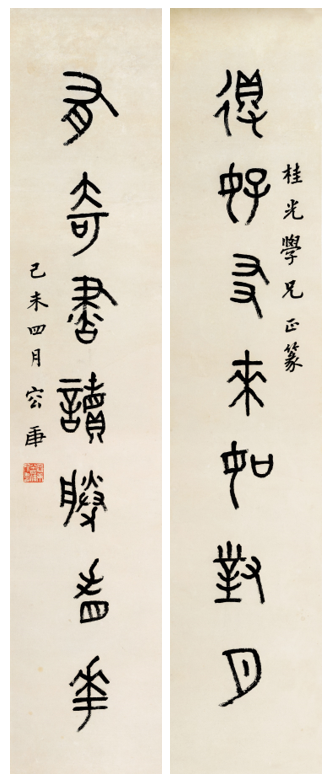 桂光學兄正篆
得好友來如對月
有奇書讀勝看華
己未四月容庚